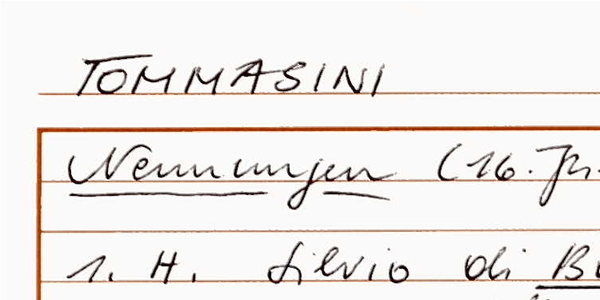 TOMMASINI
Nennungen (16. Jh.
1. H. Silvio di